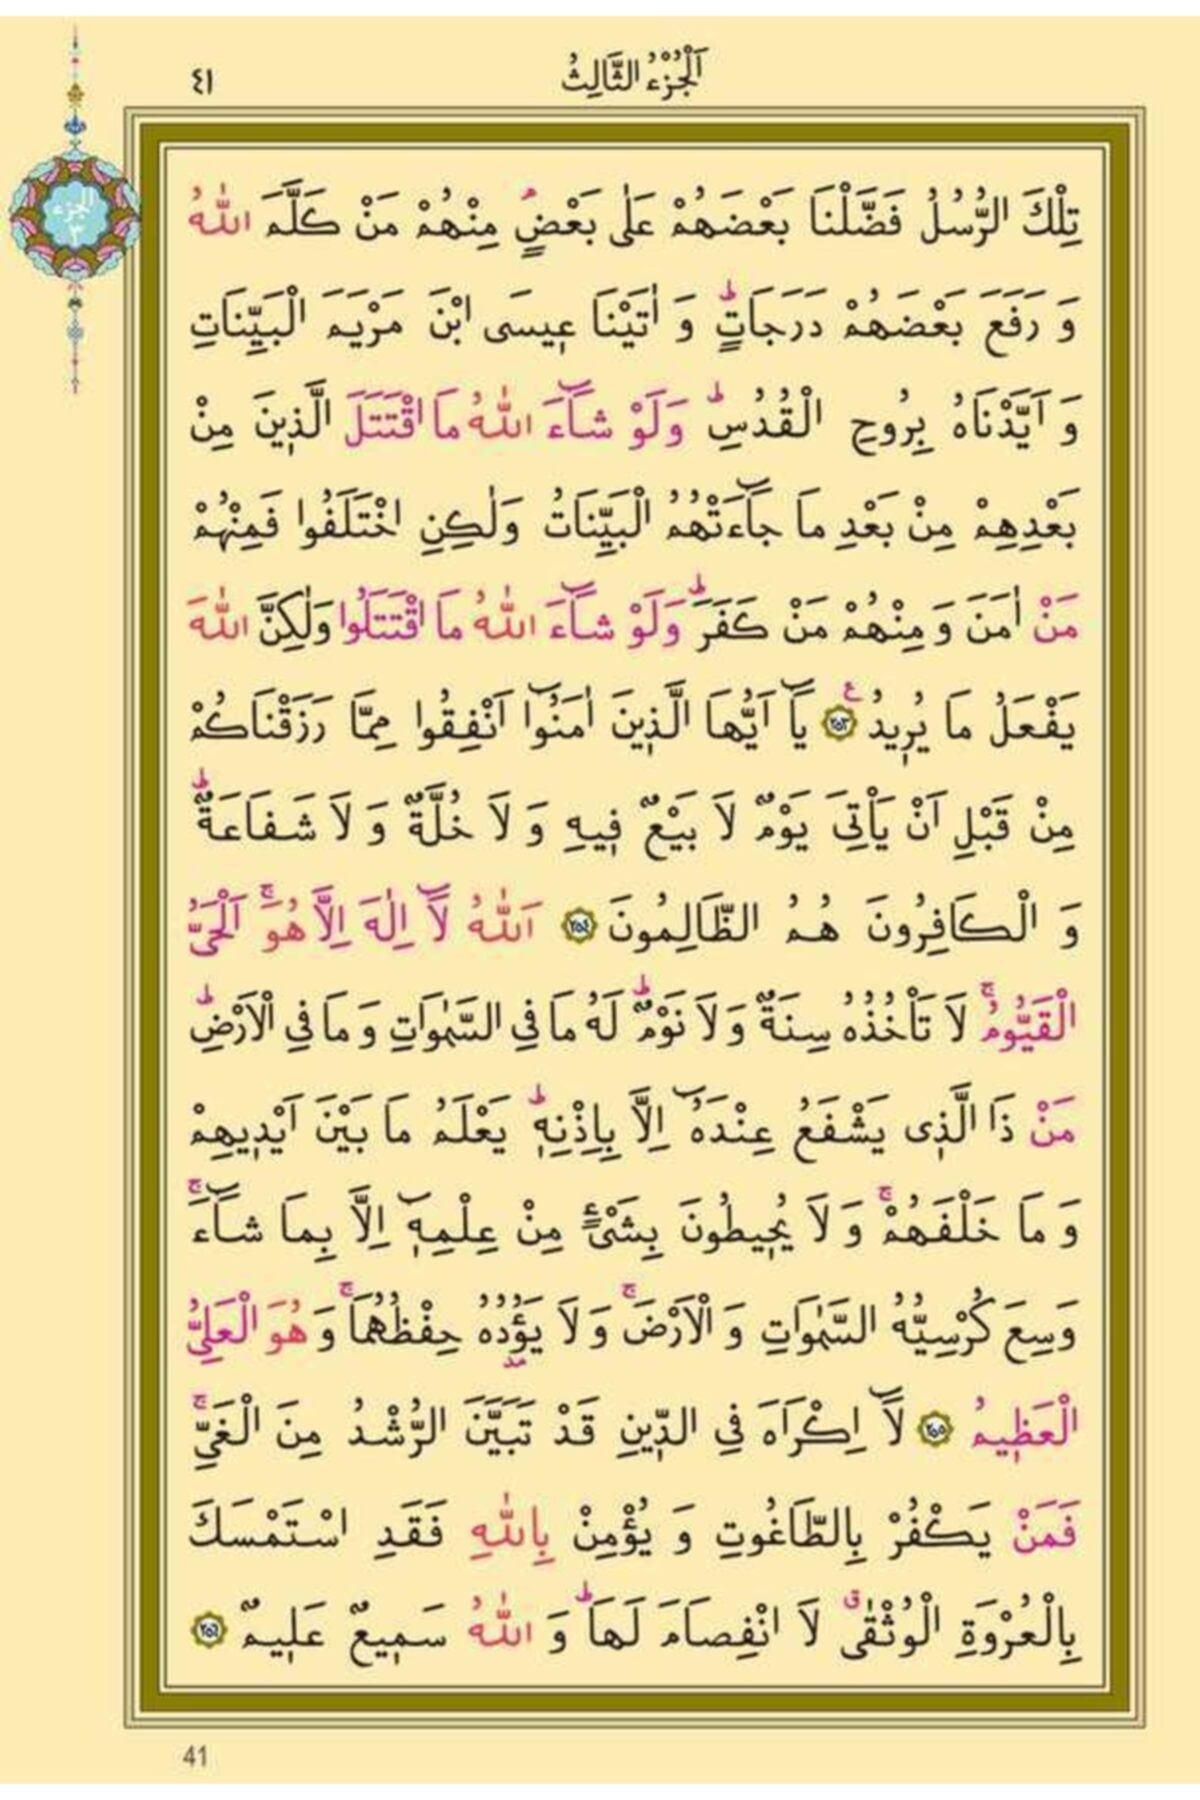 اَلْجُزْءُ الثَّالِثُ
٤١
الجزء
٣
تِلْكَ الرُّسُلُ فَضَّلْنَا بَعْضَهُمْ عَلٰى بَعْضٍۢ مِنْهُمْ مَنْ كَلَّمَ اللّٰهُ
وَ رَفَعَ بَعْضَهُمْ دَرَجَاتٍۜ وَ اٰتَيْنَا ع۪يسَى ابْنَ مَرْيَمَ الْبَيِّنَاتِ
وَ اَيَّدْنَاهُ بِرُوحِ الْقُدُسِۜ وَلَوْ شَٓاءَ اللّٰهُ مَا اقْتَتَلَ الَّذ۪ينَ مِنْ
بَعْدِهِمْ مِنْ بَعْدِ مَا جَٓاءَتْهُمُ الْبَيِّنَاتُ وَلٰكِنِ اخْتَلَفُوا فَمِنْهُمْ
مَنْ اٰمَنَ وَ مِنْهُمْ مَنْ كَفَرَۜ وَلَوْ شَٓاءَ اللّٰهُ مَا اقْتَتَلُوا وَلٰكِنَّ اللّٰهَ
يَفْعَلُ مَا يُر۪يدُ ﴿٢٥٣﴾ يَٓا اَيُّهَا الَّذ۪ينَ اٰمَنُٓوا اَنْفِقُوا مِمَّا رَزَقْنَاكُمْ
مِنْ قَبْلِ اَنْ يَأْتِيَ يَوْمٌ لَا بَيْعٌ ف۪يهِ وَ لَا خُلَّةٌ وَ لَا شَفَاعَةٌۜ
وَ الْكَافِرُونَ هُمُ الظَّالِمُونَ ﴿٢٥٤﴾ اَللّٰهُ لَٓا اِلٰهَ اِلَّا هُوَۚ اَلْحَيُّ
الْقَيُّومُۚ لَا تَأْخُذُهُ سِنَةٌ وَ لَا نَوْمٌۜ لَهُ مَا فِي السَّمٰوَاتِ وَ مَا فِي الْاَرْضِۜ
مَنْ ذَا الَّذ۪ى يَشْفَعُ عِنْدَهُٓ اِلَّا بِاِذْنِه۪ۜ يَعْلَمُ مَا بَيْنَ اَيْد۪يهِمْ
وَ مَا خَلْفَهُمْۚ وَ لَا يُح۪يطُونَ بِشَيْءٍ مِنْ عِلْمِه۪ٓ اِلَّا بِمَا شَٓاءَۚ
وَسِعَ كُرْسِيُّهُ السَّمٰوَاتِ وَ الْاَرْضَۚ وَ لَا يَؤُ۫دُهُ حِفْظُهُمَاۚ وَ هُوَ الْعَلِيُّ
الْعَظ۪يمُ ﴿٢٥٥﴾ لَٓا اِكْرَاهَ فِي الدّ۪ينِ قَدْ تَبَيَّنَ الرُّشْدُ مِنَ الْغَيِّۚ
فَمَنْ يَكْفُرْ بِالطَّاغُوتِ وَ يُؤْمِنْ بِاللّٰهِ فَقَدِ اسْتَمْسَكَ
بِالْعُرْوَةِ الْوُثْقٰىۗ لَا انْفِصَامَ لَهَاۜ وَ اللّٰهُ سَم۪يعٌ عَل۪يمٌ ﴿٢٥٦﴾
41